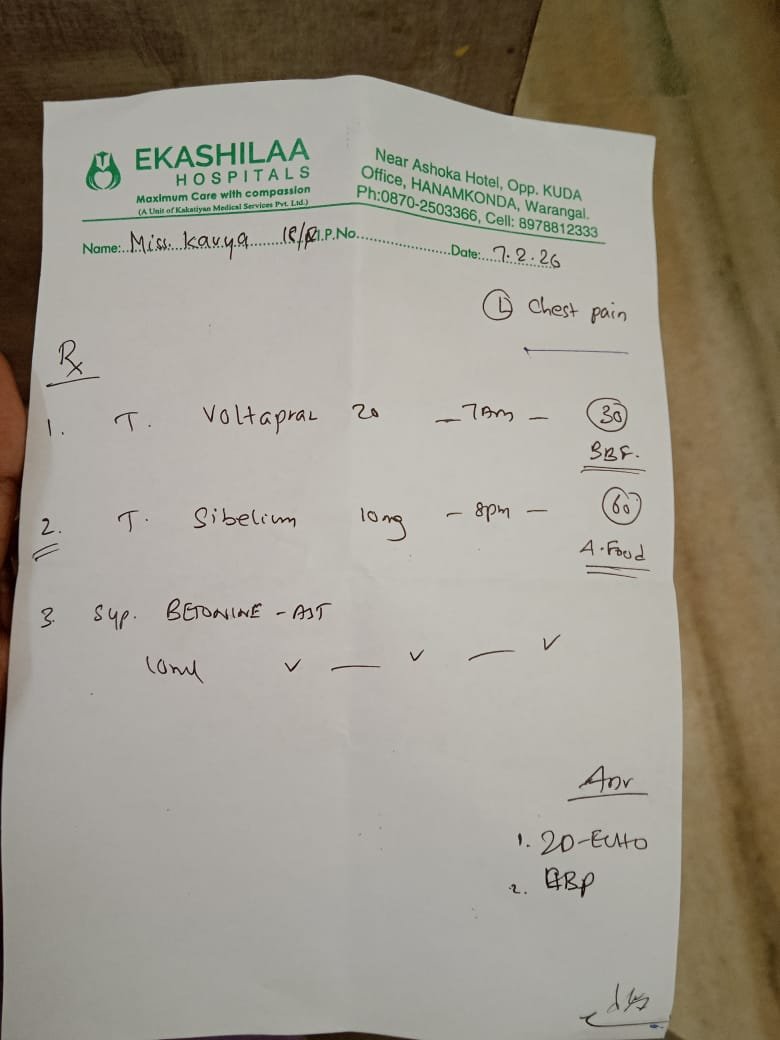 EKASHILAA
HOSPITALS
Maximum Care with compassion
(A Unit of Kakatiyan Medical Services Pvt. Ltd.)
Near Ashoka Hotel, Opp. KUDA
Office, HANAMKONDA, Warangal.
Ph:0870-2503366, Cell: 8978812333
Name:..Miss. Kavya I.P.No.................Date:...7.2.26
(L) Chest pain
Rx
1. T. Voltapraz 20 — 7am — (30)
BBF.
2. T. Sibelium 10mg — 8pm — (60)
A. Food
3. Syp. BETONINE - AST
10ml ✓ — ✓ — ✓
Adv
1. 2D-ECHO
2. CBP